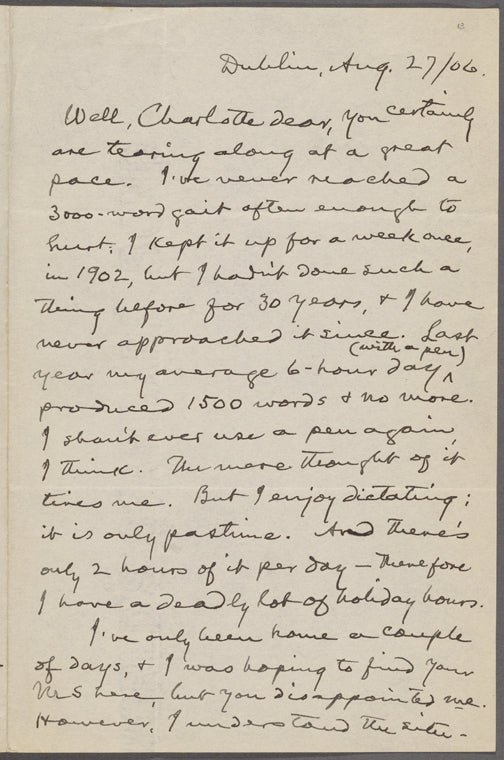 Dublin, Aug. 27/06.
Well, Charlotte dear, you certainly
are tearing along at a great
pace. I've never reached a
3000-word gait often enough to
hurt. I kept it up for a week once,
in 1902, but I hadn't done such a
thing before for 30 years, & I have
never approached it since. Last
year my average 6-hour day (with a pen)
produced 1500 words & no more.
I shan't ever use a pen again,
I think. The mere thought of it
tires me. But I enjoy dictating;
it is only pastime. And there's
only 2 hours of it per day — therefore
I have a deadly lot of holiday hours.
I've only been home a couple
of days, & I was hoping to find your
MS here, but you disappointed me.
However, I understand the situ-